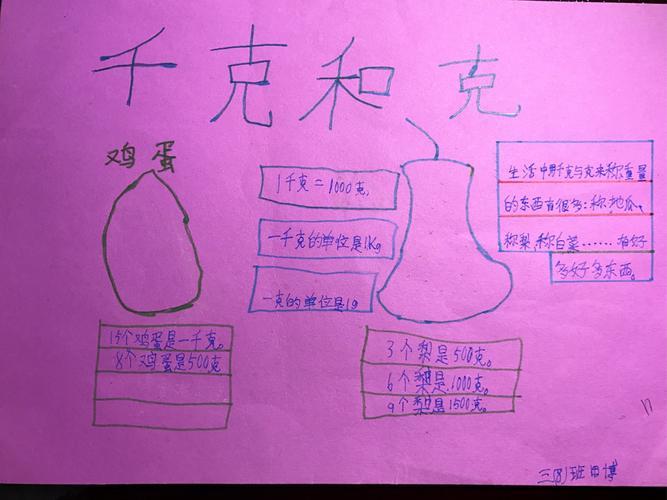 千克和克
鸡蛋
1千克=1000克
一千克的单位是1Kg
一克的单位是1g
生活中用千克与克来称重量
的东西有很多:称地瓜、
称梨、称白菜……有好
多好多东西。
15个鸡蛋是一千克。
8个鸡蛋是500克
3个梨是500克。
6个梨是1000克。
9个梨是1500克。
三(8)班田博